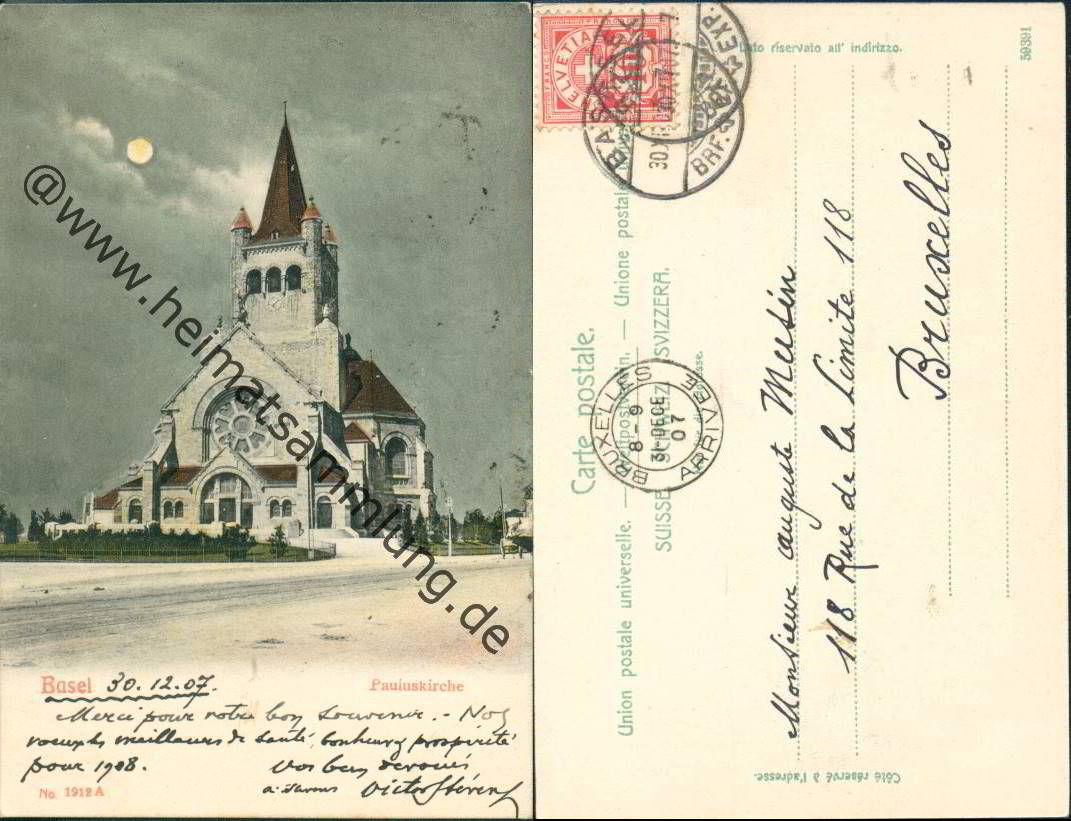 @www.heimatsammlung.de
Basel 30.12.07.
Pauluskirche
Merci pour votre bon souvenir. - Nos
voeux les meilleurs de santé, bonheur & prospérité
pour 1908.
Vos bien dévoués
Victor
No. 1912 A
HELVETIA
FRANCO
BASEL
BRF. EXP.
30.XII.07
Lato riservato all' indirizzo.
59391
Carte postale.
Union postale universelle. — Weltpostverein. — Unione postale
SUISSE. SCHWEIZ. SVIZZERA.
BRUXELLES
8-9
31 DECE
07
ARRIVEE
Monsieur auguste Musin
118 Rue de la Limite 118
Bruxelles
Côté réservé à l'adresse.